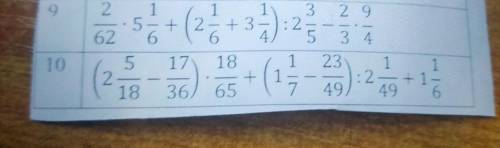 9 2/62 · 5 1/6 + (2 1/6 + 3 1/4) : 2 3/5 − 2/3 · 9/4
10 (2 5/18 − 17/36) · 18/65 + (1 1/7 − 23/49) : 2 1/49 + 1 1/6